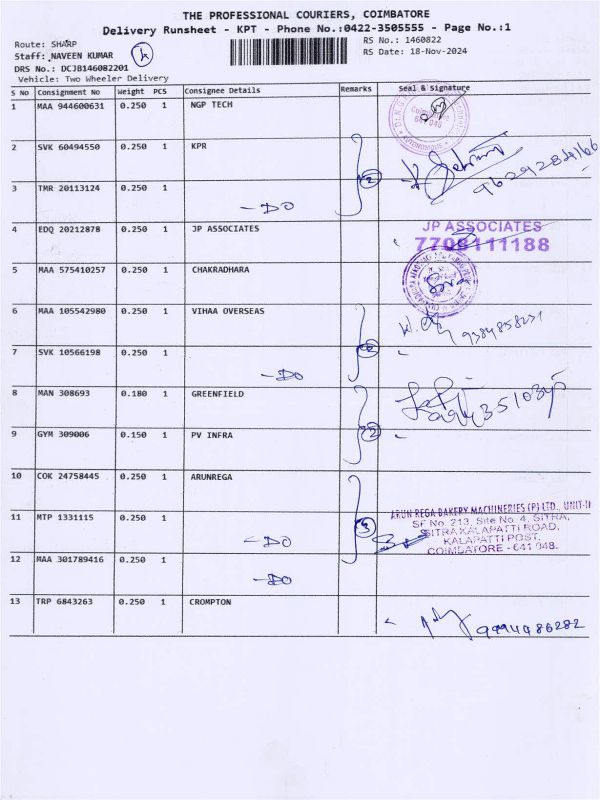 THE PROFESSIONAL COURIERS, COIMBATORE
Delivery Runsheet - KPT - Phone No.:0422-3505555 - Page No.:1
Route: SHARP
RS No.: 1460822
Staff: NAVEEN KUMAR
RS Date: 18-Nov-2024
DRS No.: DCJB146082201
Vehicle: Two Wheeler Delivery
S No Consignment No Weight PCS Consignee Details Remarks Seal & Signature
1 MAA 944600631 0.250 1 NGP TECH
2 SVK 60494550 0.250 1 KPR
2
3 TMR 20113124 0.250 1 -DO
4 EDQ 20212878 0.250 1 JP ASSOCIATES JP ASSOCIATES
7708111188
5 MAA 575410257 0.250 1 CHAKRADHARA
6 MAA 105542980 0.250 1 VIHAA OVERSEAS
7 SVK 10566198 0.250 1 -DO 2
8 MAN 308693 0.180 1 GREENFIELD
9 GYM 309006 0.150 1 PV INFRA 2
10 COK 24758445 0.250 1 ARUNREGA
ARUN REGA BAKERY MACHINERIES (P) LTD., UNIT-II
11 MTP 1331115 0.250 1 -DO 3
SF No. 213, Site No. 4, SITRA,
SITRA KALAPATTI ROAD,
KALAPATTI POST,
COIMBATORE - 641 048.
12 MAA 301789416 0.250 1 -DO
13 TRP 6843263 0.250 1 CROMPTON
9994486282